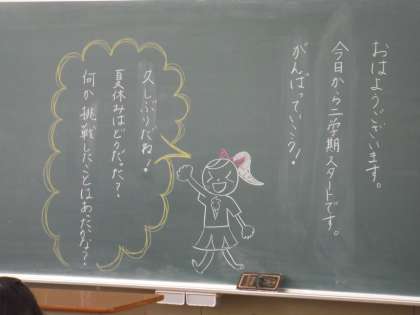 おはようございます。
今日から二学期スタートです。
がんばっていこう！
久しぶりだね！
夏休みはどうだった？
何か挑戦したことはあったかな？